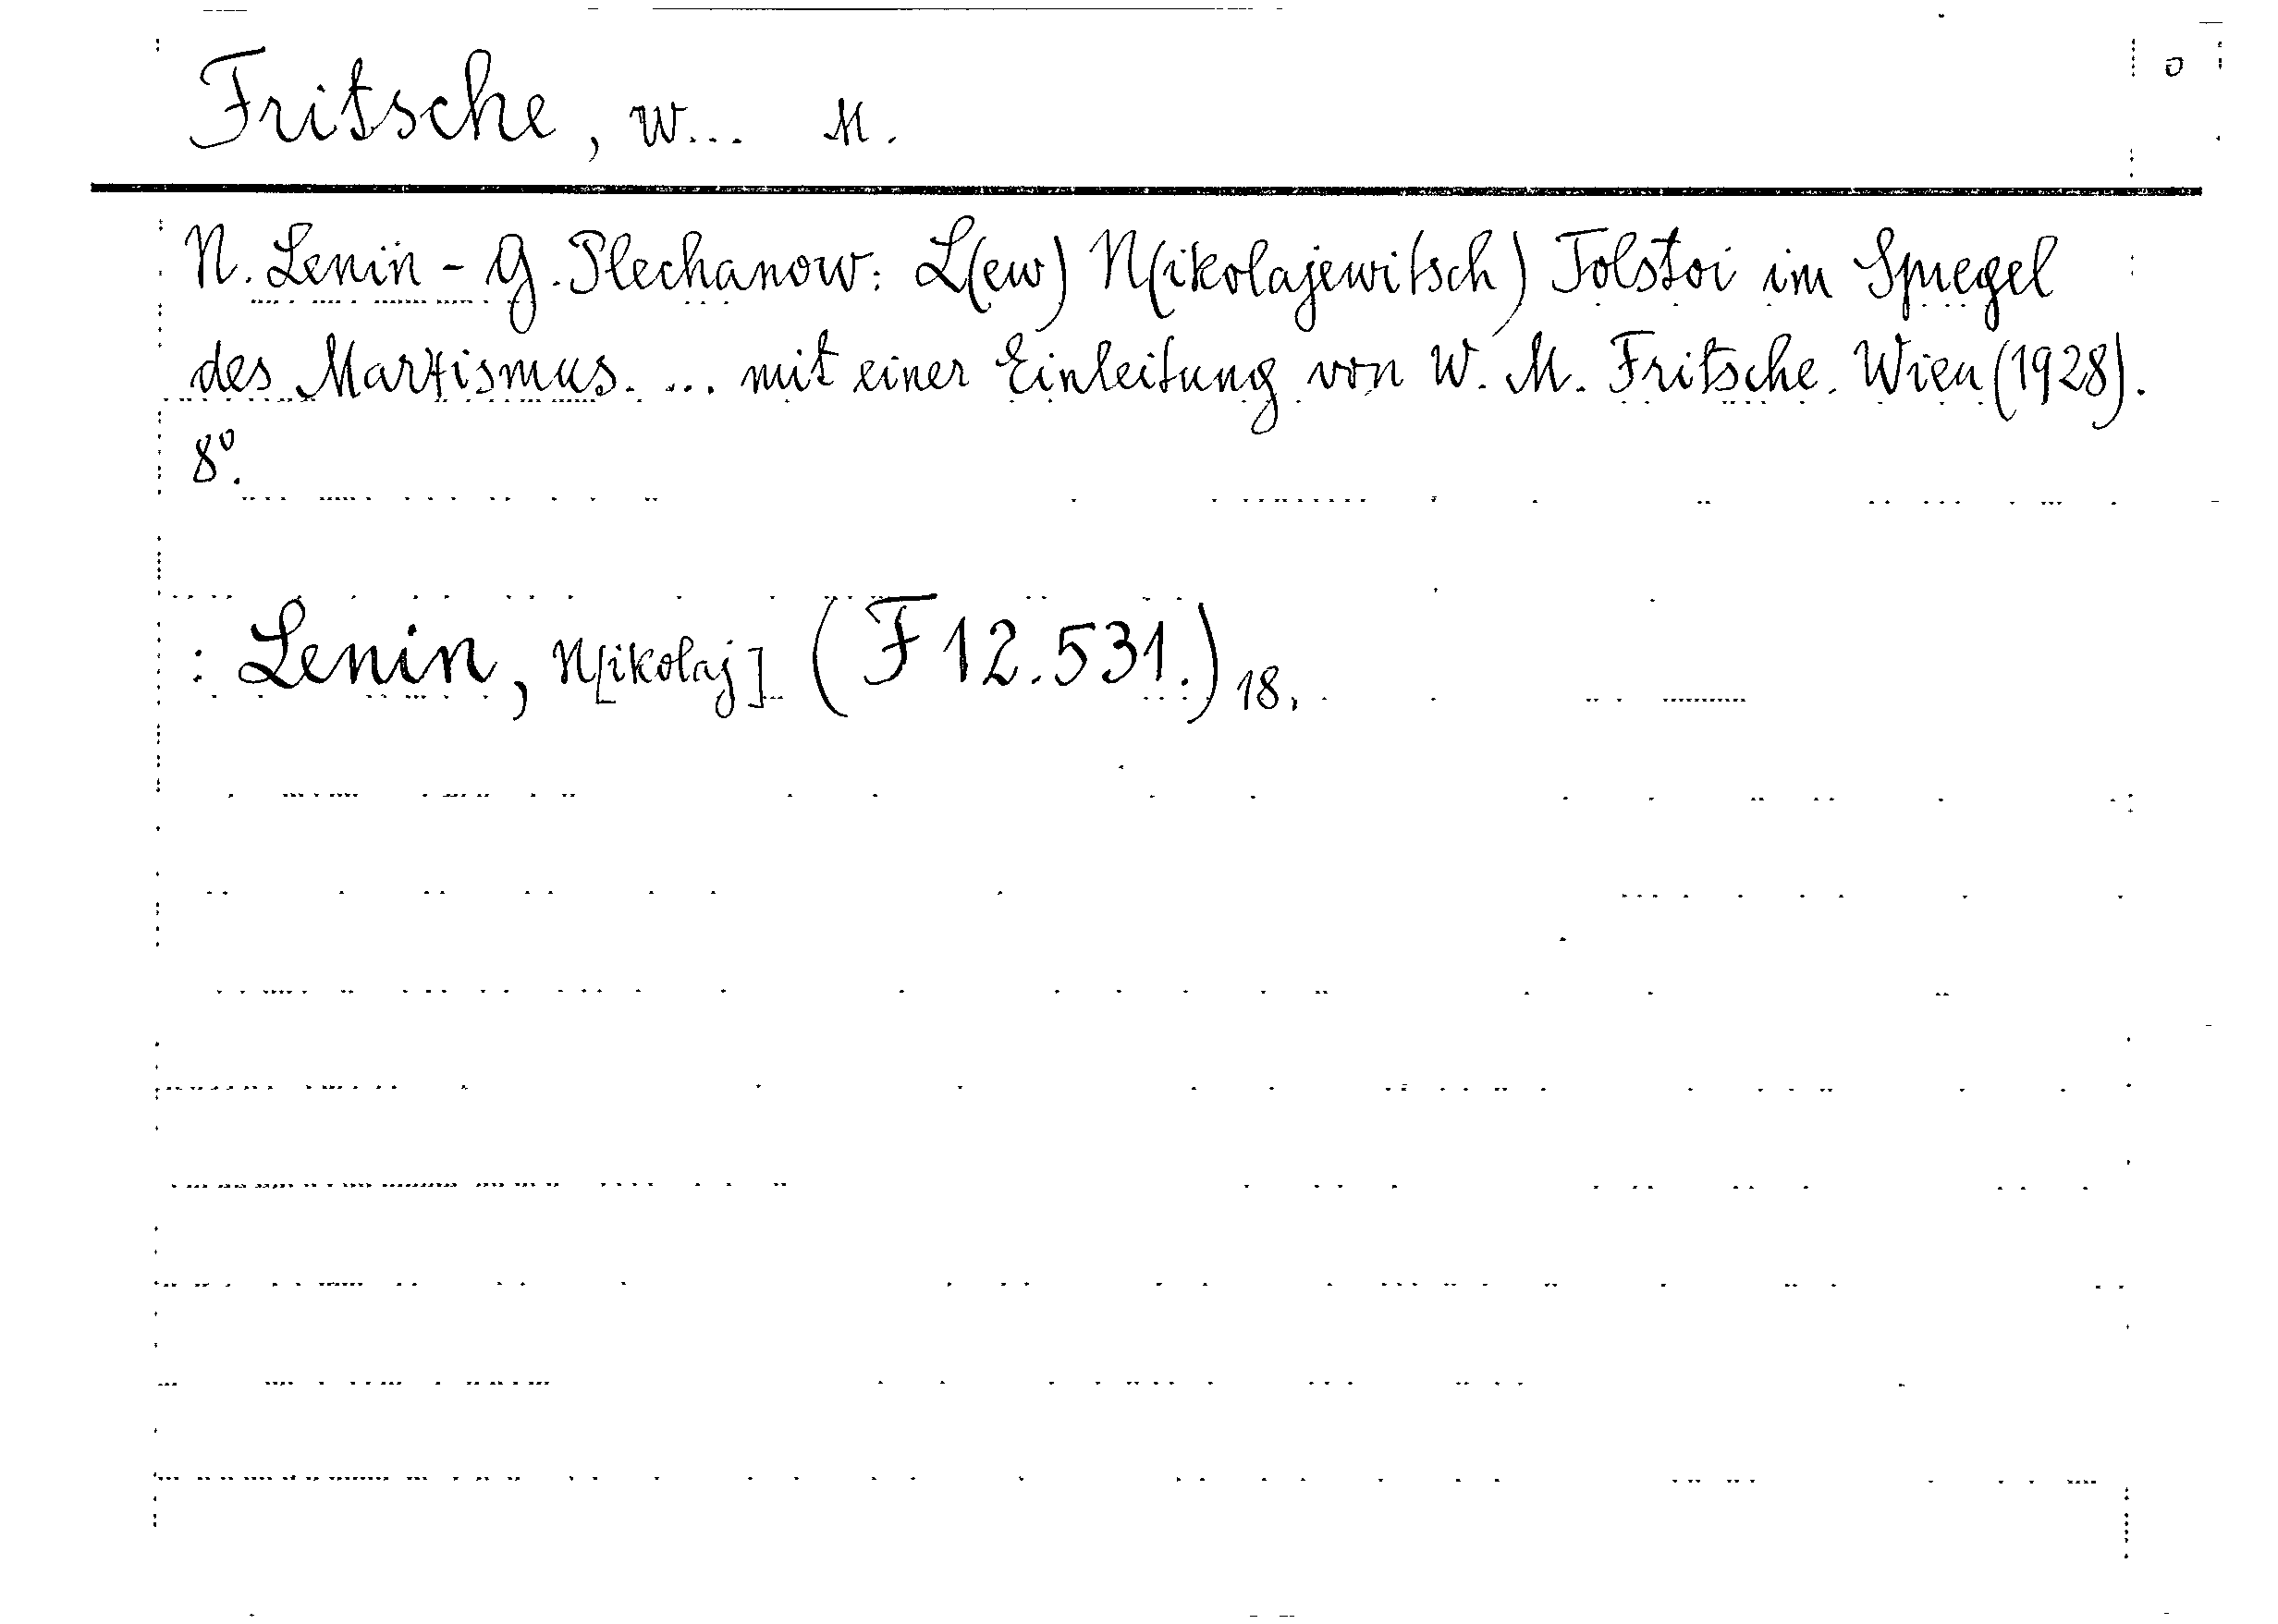 Fritsche, W... M.
0
N. Lenin - G. Plechanow: L(ew) N(ikolajewitsch) Tolstoi im Spiegel
des Marxismus. ... mit einer Einleitung von W. M. Fritsche. Wien (1928).
8º.
: Lenin, N[ikolaj] (F 12.531.) 18.